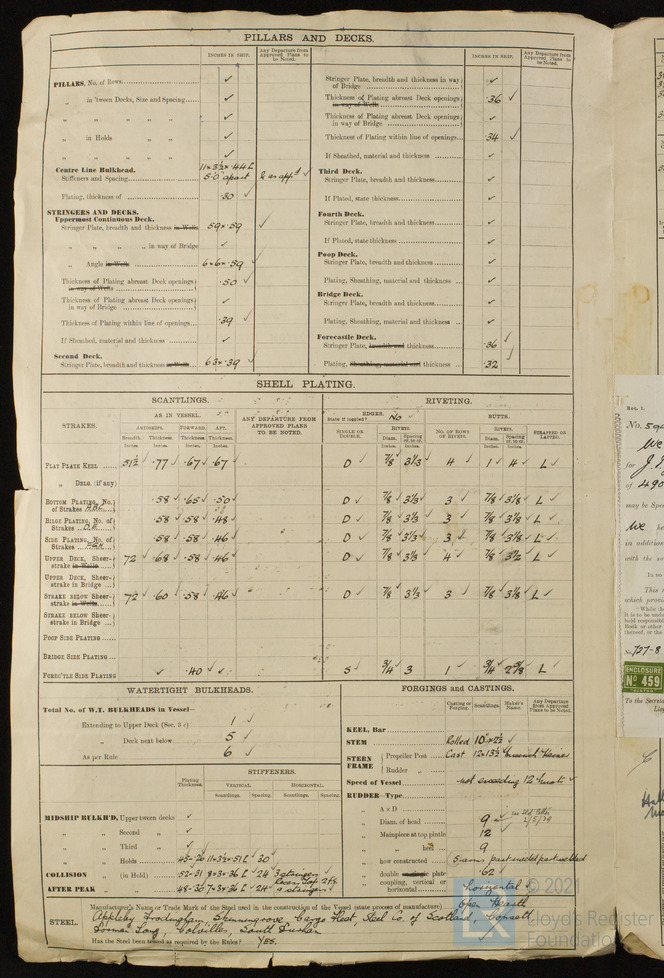 PILLARS AND DECKS.
INCHES IN SHIP.
Any Departure from Approved Plans to be Noted.
PILLARS, No. of Rows
„ in 'tween Decks, Size and Spacing
„ „ „ „
„ in Holds „
„ „ „
Centre Line Bulkhead.
Stiffeners and Spacing
11 × 3½ × .44 L
5'.0" apart
2 as app'd
Plating, thickness of
.30
STRINGERS AND DECKS.
Uppermost Continuous Deck.
Stringer Plate, breadth and thickness in Wells
59 × .59
„ „ „ „ in way of Bridge
„ Angle in Wells
6 × 6 × .59
Thickness of Plating abreast Deck openings in way of Wells
.50
Thickness of Plating abreast Deck openings in way of Bridge
Thickness of Plating within line of openings
.39
If Sheathed, material and thickness
Second Deck.
Stringer Plate, breadth and thickness in Wells
63 × .39
INCHES IN SHIP.
Any Departure from Approved Plans to be Noted.
Stringer Plate, breadth and thickness in way of Bridge
Thickness of Plating abreast Deck openings in way of Wells
.36
Thickness of Plating abreast Deck openings in way of Bridge
Thickness of Plating within line of openings
.34
If Sheathed, material and thickness
Third Deck.
Stringer Plate, breadth and thickness
If Plated, state thickness
Fourth Deck.
Stringer Plate, breadth and thickness
If Plated, state thickness
Poop Deck.
Stringer Plate, breadth and thickness
Plating, Sheathing, material and thickness
Bridge Deck.
Stringer Plate, breadth and thickness
Plating, Sheathing, material and thickness
Forecastle Deck.
Stringer Plate, breadth and thickness
.36
Plating, Sheathing, material and thickness
.32
SHELL PLATING.
SCANTLINGS.
RIVETING.
STRAKES.
AS IN VESSEL.
AMIDSHIPS. FORWARD. AFT.
Breadth. Thickness. Thickness. Thickness.
Inches. Inches. Inches. Inches.
ANY DEPARTURE FROM APPROVED PLANS TO BE NOTED.
EDGES.
State if joggled? No
SINGLE OR DOUBLE.
RIVETS.
Diam. Spacing cr. to cr.
BUTTS.
No. OF ROWS OF RIVETS.
RIVETS.
Diam. Spacing cr. to cr.
STRAPPED OR LAPPED.
FLAT PLATE KEEL 51½ .77 .67 .67 D 7/8 3⅓ 4 1 4 L
„ DBLG. (if any)
BOTTOM PLATING, No. of Strakes .58 .65 .50 D 7/8 3⅓ 3 7/8 3⅛ L
BILGE PLATING, No. of Strakes .58 .58 .48 D 7/8 3⅓ 3 7/8 3⅛ L
SIDE PLATING, No. of Strakes .58 .58 .46 D 7/8 3⅓ 3 7/8 3⅛ L
UPPER DECK, Sheer-strake in Wells 72 .68 .58 .46 D 7/8 3⅓ 4 7/8 3½ L
UPPER DECK, Sheer-strake in Bridge
STRAKE BELOW Sheer-strake in Wells 72 .60 .58 .46 D 7/8 3⅓ 3 7/8 3⅛ L
STRAKE BELOW Sheer-strake in Bridge
POOP SIDE PLATING
BRIDGE SIDE PLATING
FOREC'TLE SIDE PLATING .40 S 3/4 3 1 3/4 2⅝ L
WATERTIGHT BULKHEADS.
Total No. of W.T. BULKHEADS in Vessel—
Extending to Upper Deck (Sec. 3 c) 1
„ Deck next below 5
As per Rule 6
Plating Thickness.
STIFFENERS.
VERTICAL. HORIZONTAL.
Scantlings. Spacing. Scantlings. Spacing.
MIDSHIP BULKH'D, Upper tween decks
„ „ Second „
„ „ Third „
„ „ Holds .45-.26 11×3½×.51 L 30
COLLISION „ (in Hold) .52-.31 8×3×.36 L 24
AFTER PEAK „ „ .48-.36 7×3×.36 L 24
FORGINGS AND CASTINGS.
Casting or Forging. Scantlings. Maker's Names. Any Departure from Approved Plans to be Noted.
KEEL, Bar
STEM Rolled 10" × 2½
STERN FRAME
Propeller Post Cast 12×13½
Rudder „
Speed of Vessel not exceeding 12 knots
RUDDER—Type
„ A × D
„ Diam. of head 9
2/5/39
„ Mainpiece at top pintle 12
„ „ heel 9
„ how constructed
„ double single plate .62
„ coupling, vertical or horizontal horizontal
STEEL.
Manufacturer's Name or Trade Mark of the Steel used in the construction of the Vessel (state process of manufacture) Open Hearth
Appleby Frodingham, Skinningrove, Cargo Fleet, Steel Co. of Scotland, Consett
Dorman Long, Colvilles, South Durham
Has the Steel been tested as required by the Rules? YES.
© 2021
Lloyd's Register
Foundation
No. 590
We
for J.
of 490
may be Spe
We be
in addition
with the
This
which provi
No. 727-8
ENCLOSURE
No 459
To the Secreta